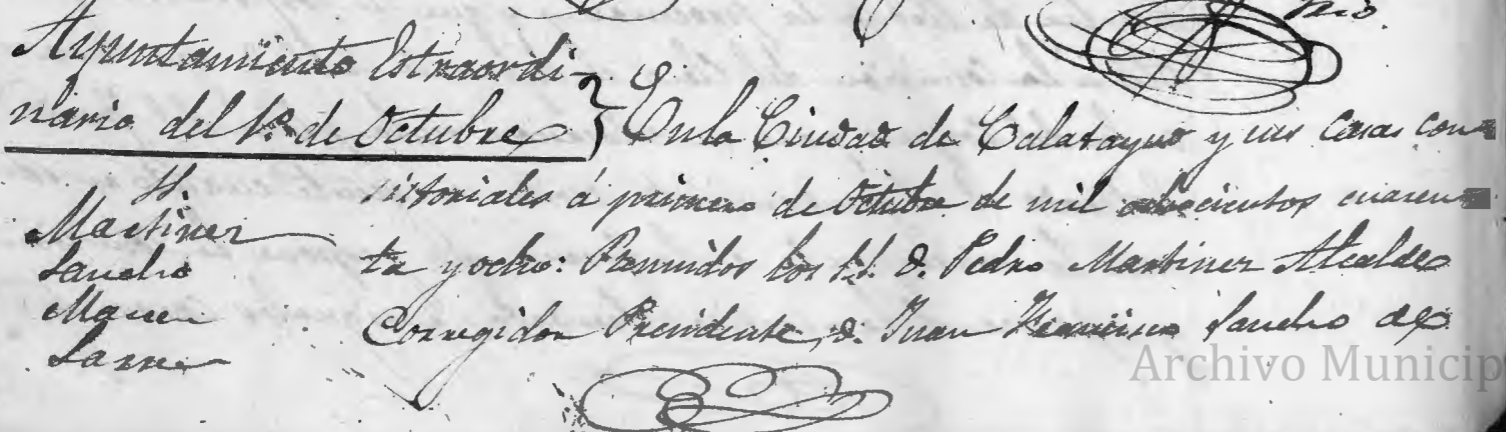 Ayuntamiento Estraordi-
nario del 1º de Octubre } En la Ciudad de Calatayud y sus casas con-
sistoriales á primero de Octubre de mil ochocientos cuaren-
ta y ocho: Reunidos los S.S. D. Pedro Martinez Alcalde
Corregidor Presidente, D. Juan Francisco Sancho de
SS.
Martinez
Sancho
Archivo Municip